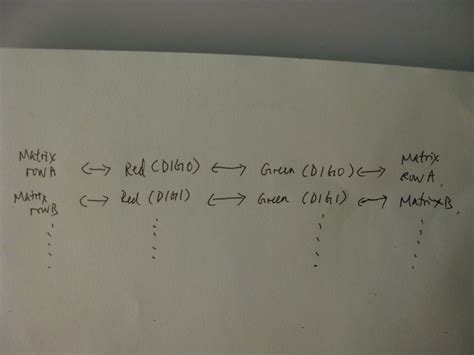 Matrix row A ↔ Red (DIG0) ↔ Green (DIG0) ↔ Matrix row A.
Matrix row B ↔ Red (DIG1) ↔ Green (DIG1) ↔ Matrix B.